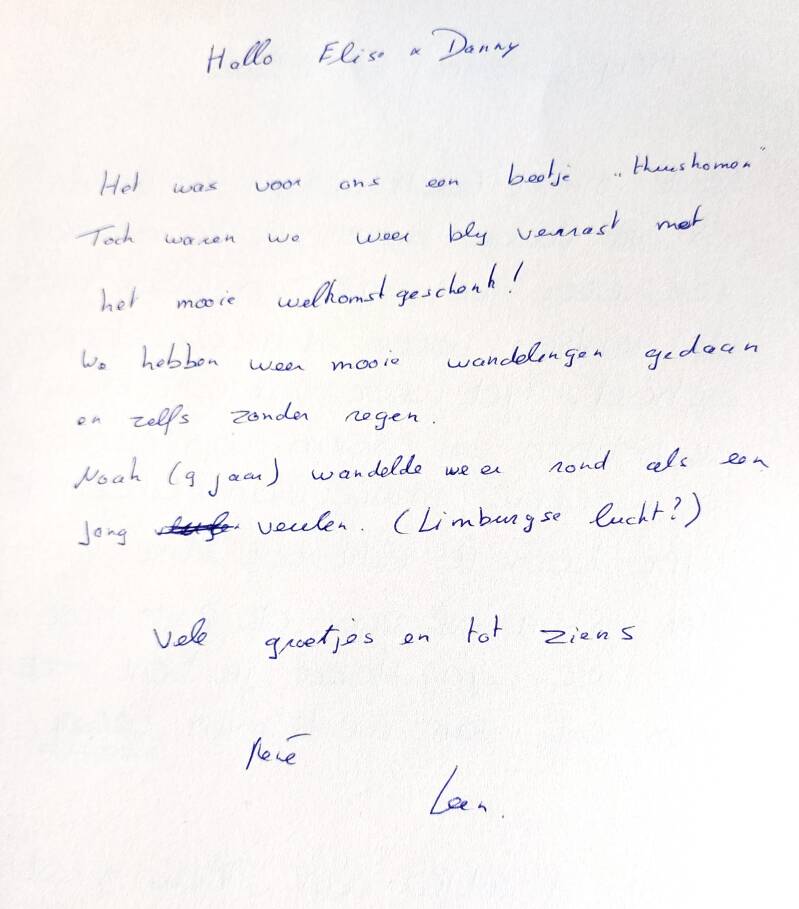 Hallo Elise & Danny
Het was voor ons een beetje „thuiskomen"
Toch waren we weer bly verrast met
het mooie welkomstgeschenk!
We hebben weer mooie wandelingen gedaan
en zelfs zonder regen.
Noah (9 jaar) wandelde weer rond als een
jong veulen. (Limburgse lucht?)
Vele groetjes en tot ziens
René
Leen.